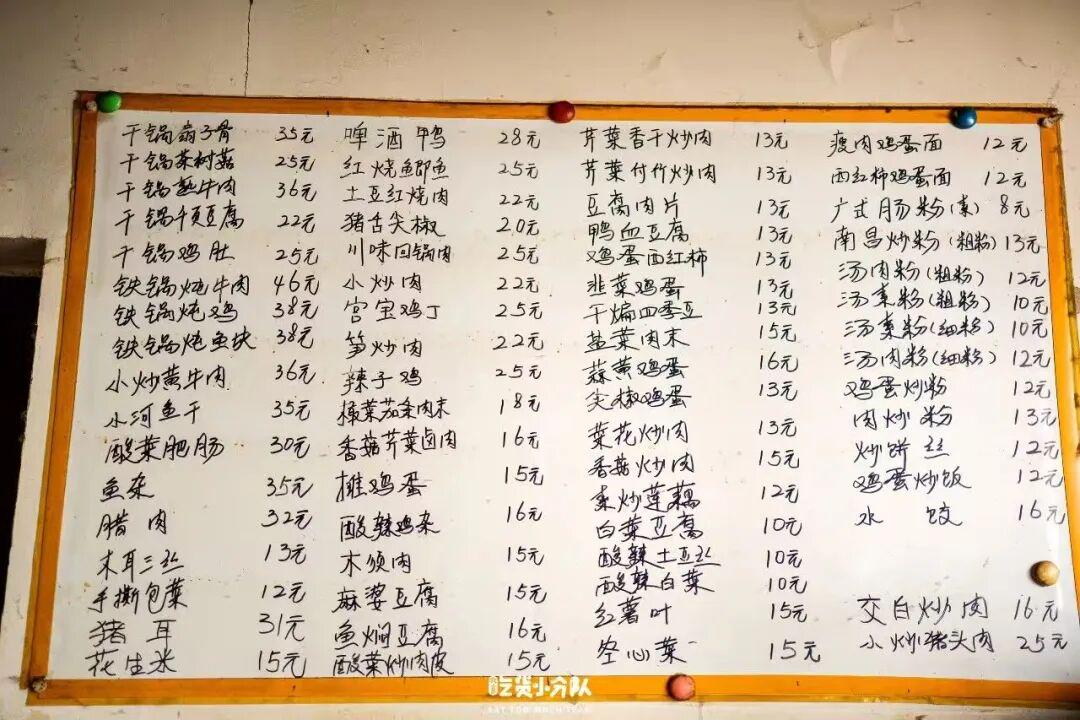 干锅扇子骨 35元
干锅茶树菇 25元
干锅熟牛肉 36元
干锅千页豆腐 22元
干锅鸡肚 25元
铁锅炖牛肉 46元
铁锅炖鸡 38元
铁锅炖鱼块 38元
小炒黄牛肉 36元
小河鱼干 35元
酸菜肥肠 30元
鱼杂 35元
腊肉 32元
木耳三丝 13元
手撕包菜 12元
猪耳 31元
花生米 15元
啤酒鸭 28元
红烧鲫鱼 25元
土豆红烧肉 22元
猪舌尖椒 20元
川味回锅肉 25元
小炒肉 22元
宫宝鸡丁 25元
笋炒肉 22元
辣子鸡 25元
菜茄条肉末 18元
香菇芹菜卤肉 16元
摊鸡蛋 15元
酸辣鸡杂 16元
木须肉 15元
麻婆豆腐 15元
鱼焖豆腐 16元
酸菜炒肉皮 15元
芹菜香干炒肉 13元
芹菜付竹炒肉 13元
豆腐肉片 13元
鸭血豆腐 13元
鸡蛋西红柿 13元
韭菜鸡蛋 13元
干煸四季豆 13元
盐菜肉末 15元
蒜黄鸡蛋 16元
尖椒鸡蛋 13元
菜花炒肉 13元
香菇炒肉 15元
素炒莲藕 12元
白菜豆腐 10元
酸辣土豆丝 10元
酸辣白菜 10元
红薯叶 15元
空心菜 15元
瘦肉鸡蛋面 12元
西红柿鸡蛋面 12元
广式肠粉(素) 8元
南昌炒粉(粗粉) 13元
汤肉粉(粗粉) 12元
汤素粉(粗粉) 10元
汤素粉(细粉) 10元
汤肉粉(细粉) 12元
鸡蛋炒粉 12元
肉炒粉 13元
炒饼丝 12元
鸡蛋炒饭 12元
水饺 16元
交白炒肉 16元
小炒猪头肉 25元
吃货小分队
EAT TOO MUCH TEAM